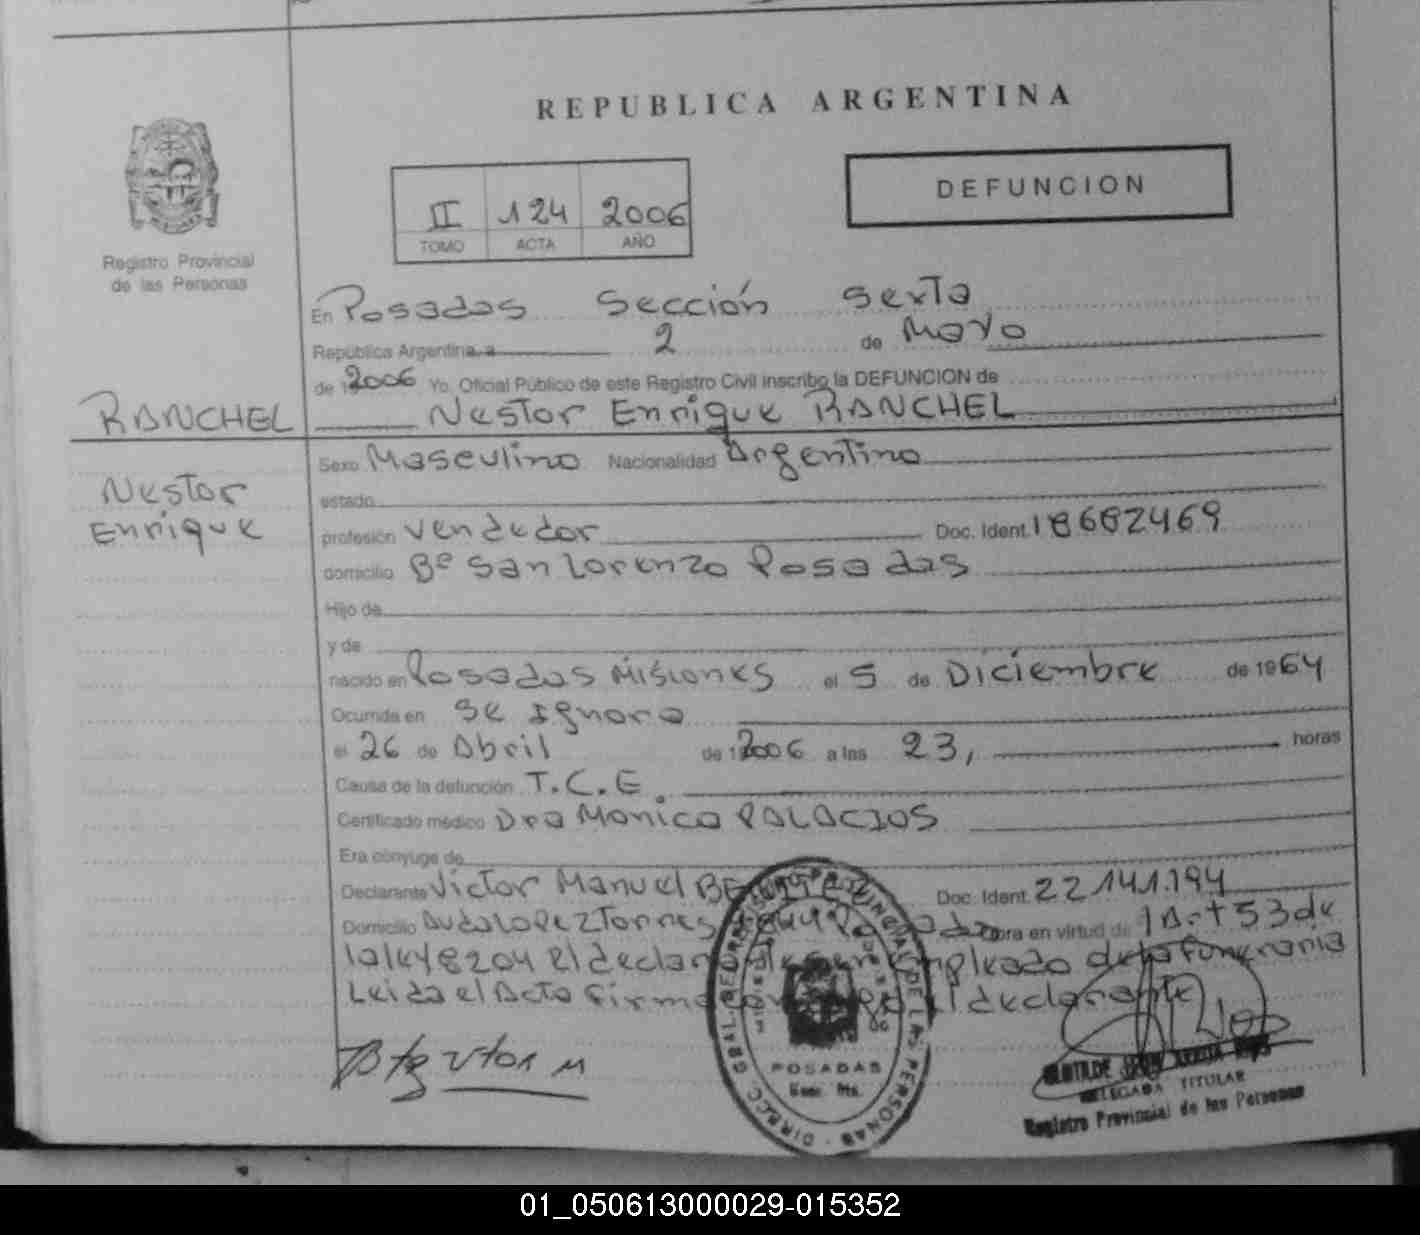 REPUBLICA ARGENTINA
DEFUNCION
II 124 2006
TOMO ACTA AÑO
Registro Provincial
de las Personas
En Posadas Sección Sexta
República Argentina, a 2 de Mayo
de 2006 Yo, Oficial Público de este Registro Civil inscribo la DEFUNCION de
RANCHEL
Nestor Enrique RANCHEL
Nestor
Enrique
Sexo Masculino Nacionalidad Argentino
estado
profesión Vendedor Doc. Ident. 18662469
domicilio Bº San Lorenzo Posadas
Hijo de
y de
nacido en Posadas Misiones el 5 de Diciembre de 1964
Ocurrida en Se Ignora
el 26 de Abril de 2006 a las 23, horas
Causa de la defunción T.C.E.
Certificado médico Dra Monica PALACIOS
Era cónyuge de
Declarante Victor Manuel Doc. Ident. 22.141.194
Domicilio Avda Lopez Torres obra en virtud de 53 de
la ley 8204 El declarante empleado de la funeraria
Leida el Acta firma el declarante
POSADAS
DELEGADA TITULAR
Registro Provincial de las Personas
01_050613000029-015352